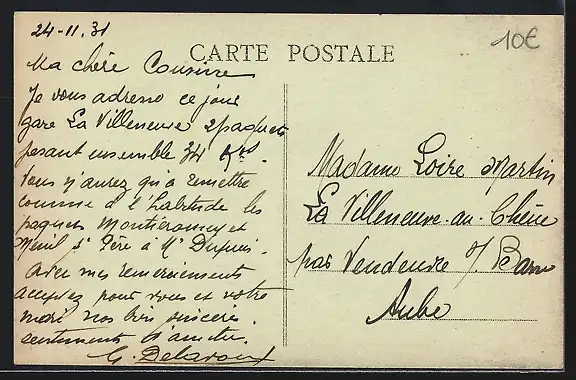 24-11.31
10€
CARTE POSTALE
Ma chère Cousine
Je vous adresse ce jour
gare La Villeneuve 2 paquets
pesant ensemble 34 Kgs.
Vous n'aurez qu'à remettre
comme à l'habitude les
paquets Montiéramey et
Menil St Père à Mr Dupuis.
Avec mes remerciements
acceptez pour vous et votre
mari nos bien sincères
sentiments d'amitié.
G.
Madame Loire Martin
La Villeneuve-au-Chêne
par Vendeuvre s/ Barse
Aube